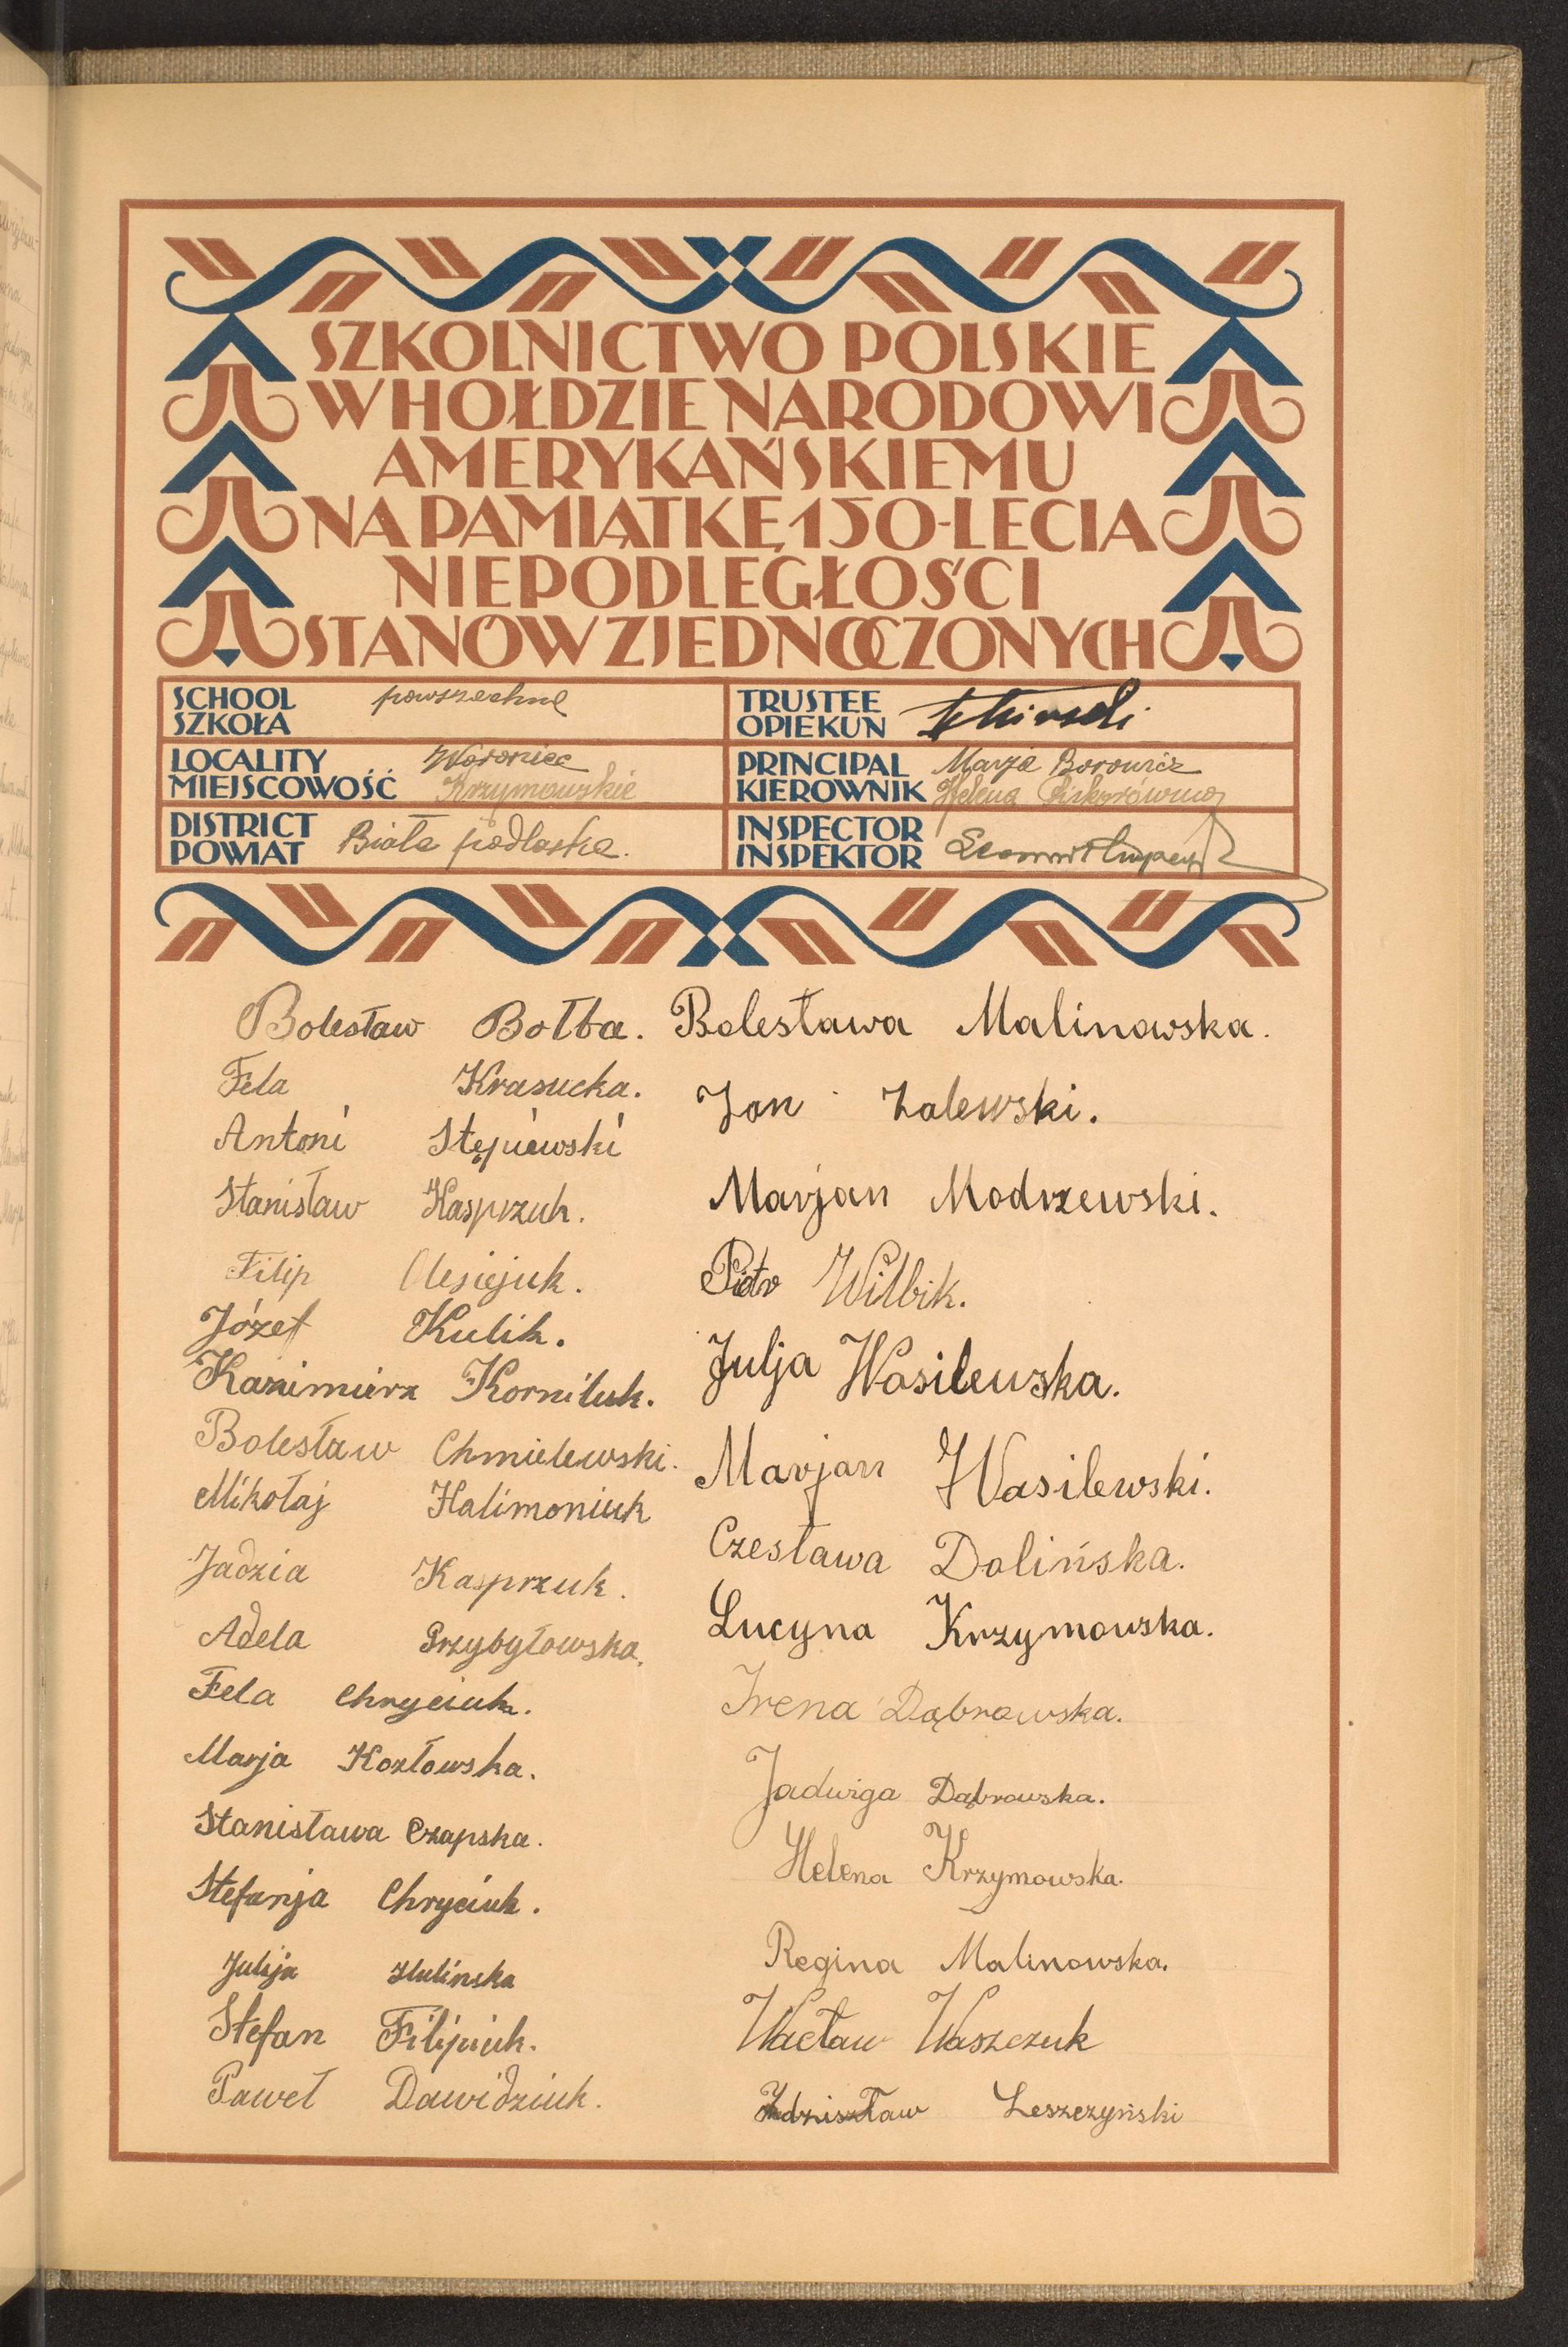 SZKOLNICTWO POLSKIE
W HOŁDZIE NARODOWI
AMERYKAŃSKIEMU
NA PAMIĄTKĘ 150-LECIA
NIEPODLEGŁOŚCI
STANÓW ZJEDNOCZONYCH
SCHOOL
SZKOŁA
powszechne
LOCALITY
MIEJSCOWOŚĆ
Woroniec
Krzymowskie
DISTRICT
POWIAT
Biała podlaska.
TRUSTEE
OPIEKUN
PRINCIPAL
KIEROWNIK
Marja Borowicz
Helena
INSPECTOR
INSPEKTOR
Bolesław Bołba.
Fela Krasucka.
Antoni Stępiewski
Stanisław Kasprzuk.
Filip Olesiejuk.
Józef Kulik.
Kazimierz Korniluk.
Bolesław Chmielewski.
Mikołaj Halimoniuk
Jadzia Kasprzuk.
Adela Przybyłowska.
Fela Chryciuk.
Marja Kozłowska.
Stanisława Czapska.
Stefanja Chryciuk.
Julija Hulinska
Stefan Filipiuk.
Paweł Dawidziuk.
Bolesława Malinowska.
Jan Zalewski.
Marjan Modrzewski.
Piotr Wilbik.
Julja Wasilewska.
Marjan Wasilewski.
Czesława Dolińska.
Lucyna Krzymowska.
Irena Dąbrowska.
Jadwiga Dąbrowska.
Helena Krzymowska.
Regina Malinowska.
Wacław Waszczuk
Zdzisław Leszczyński